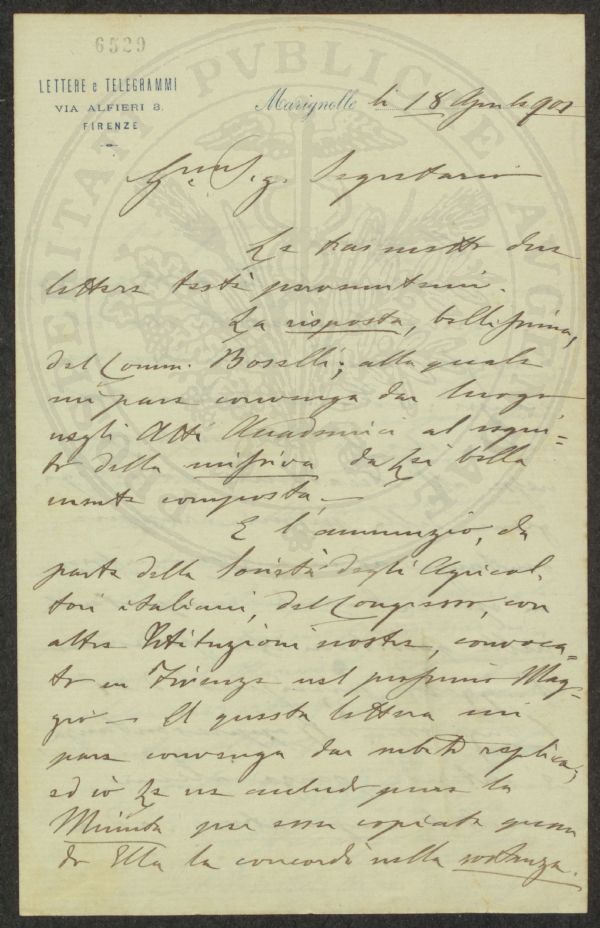 6529
LETTERE e TELEGRAMMI
VIA ALFIERI 3.
FIRENZE
Marignolle li 18 Aprile 901
Sig. Segretario
Le trasmetto due
lettere testè pervenutemi.
La risposta, bellissima,
del Comm. Boselli; alla quale
mi pare convenga dar luogo
negli Atti Accademici al segui=
to della missiva da Lei bella
mente composta. —
E l'annunzio, da
parte della Società degli Agricol,
tori italiani, del Congresso, con
altre Istituzioni nostre, convoca=
to in Firenze nel prossimo Mag=
gio — A questa lettera mi
pare convenga dar subito replica;
ed io Le ne accludo pure la
Minuta per esser copiata quan
do Ella la concordi nella sostanza.